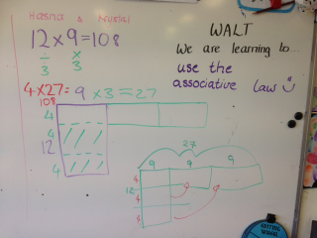 Hasna & Nurial
12×9=108
÷ ×
3 3
4×27= 9 ×3=27
108
4
4
12
4
WALT
We are learning to...
use the
associative law
27
9 9 9
4
12
4
4